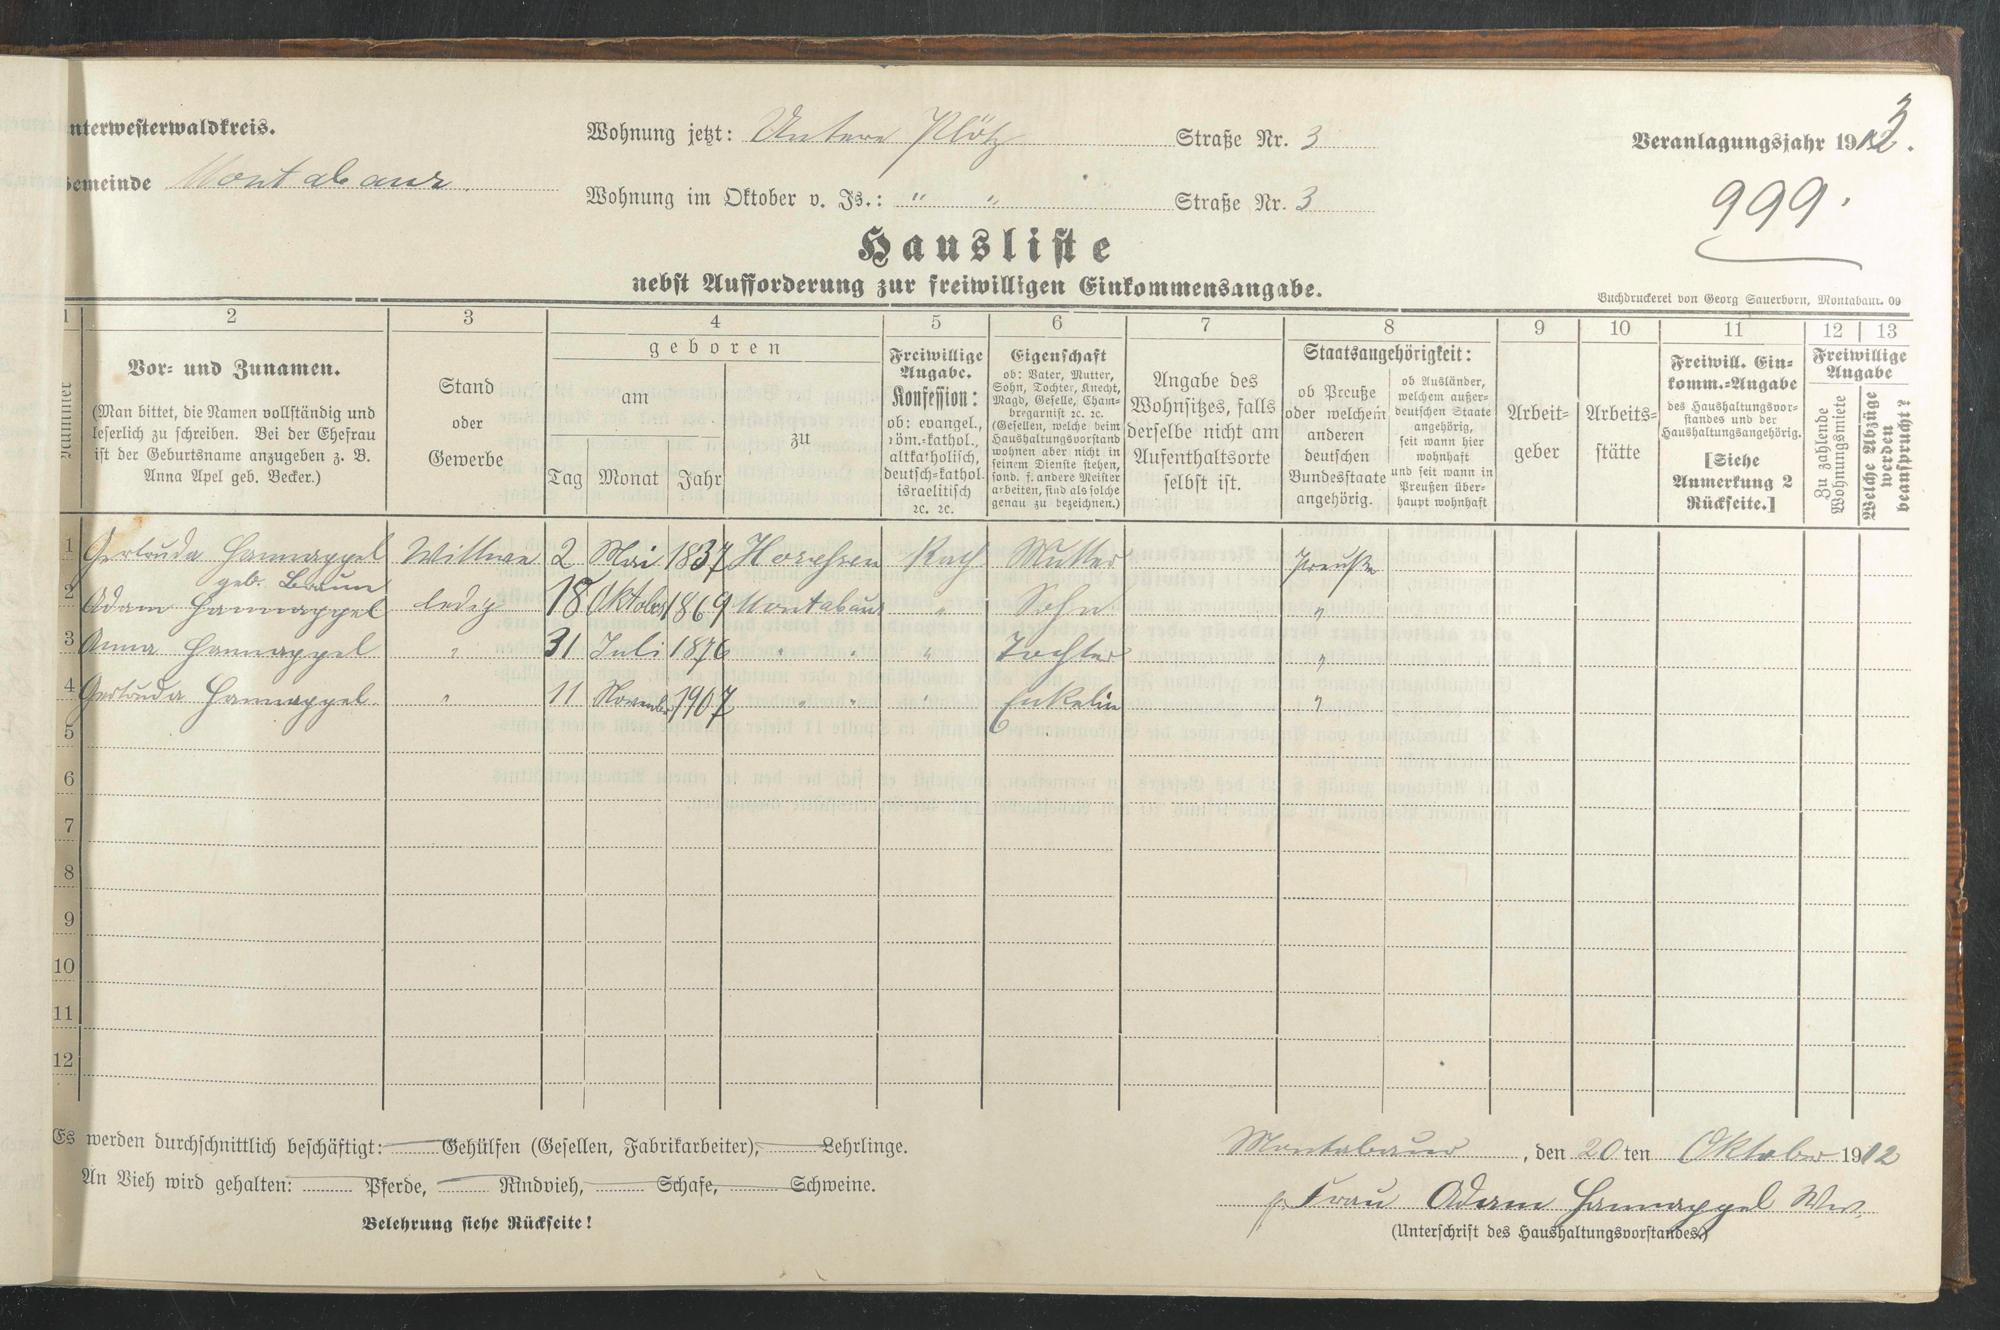 nterwesterwaldkreis.
Wohnung jetzt: Untere Plötz Straße Nr. 3
Veranlagungsjahr 1913.
emeinde Montabaur.
Wohnung im Oktober v. Js.: " " Straße Nr. 3
999.
Hausliste
nebst Aufforderung zur freiwilligen Einkommensangabe.
Buchdruckerei von Georg Sauerborn, Montabaur. 09
1 2 3 4 5 6 7 8 9 10 11 12 13
Nummer
Vor- und Zunamen.
(Man bittet, die Namen vollständig und
leserlich zu schreiben. Bei der Ehefrau
ist der Geburtsname anzugeben z. B.
Anna Apel geb. Becker.)
Stand
oder
Gewerbe
geboren
am
Tag Monat Jahr
zu
Freiwillige
Angabe.
Konfession:
ob: evangel.,
röm.-kathol.,
altkatholisch,
deutsch-kathol.
israelitisch
2c. 2c.
Eigenschaft
ob: Vater, Mutter,
Sohn, Tochter, Knecht,
Magd, Geselle, Cham-
bregarnist 2c. 2c.
(Gesellen, welche beim
Haushaltungsvorstand
wohnen aber nicht in
seinem Dienste stehen,
sond. f. andere Meister
arbeiten, sind als solche
genau zu bezeichnen.)
Angabe des
Wohnsitzes, falls
derselbe nicht am
Aufenthaltsorte
selbst ist.
Staatsangehörigkeit:
ob Preuße
oder welchem
anderen
deutschen
Bundesstaate
angehörig.
ob Ausländer,
welchem außer-
deutschen Staate
angehörig,
seit wann hier
wohnhaft
und seit wann in
Preußen über-
haupt wohnhaft
Arbeit-
geber
Arbeits-
stätte
Freiwill. Ein-
komm.-Angabe
des Haushaltungsvor-
standes und der
Haushaltungsangehörig.
[Siehe
Anmerkung 2
Rückseite.]
Freiwillige
Angabe
Zu zahlende
Wohnungsmiete
Welche Abzüge
werden
beansprucht?
1 Gertruda Hannappel Wittwe 2 Mai 1837 Horchren Kath Mutter Preuße
geb. Braun
2 Adam Hannappel ledig 18 Oktober 1869 Montabaur " Sohn "
3 Anna Hannappel " 31 Juli 1876 " " " Tochter "
4 Gertruda Hannappel " 11 November 1907 " " " Enkelin "
5
6
7
8
9
10
11
12
Es werden durchschnittlich beschäftigt: Gehülfen (Gesellen, Fabrikarbeiter), Lehrlinge.
Montabaur, den 20ten Oktober 1912
An Vieh wird gehalten: Pferde, Rindvieh, Schafe, Schweine.
Frau Adam Hannappel Ww.
Belehrung siehe Rückseite!
(Unterschrift des Haushaltungsvorstandes.)